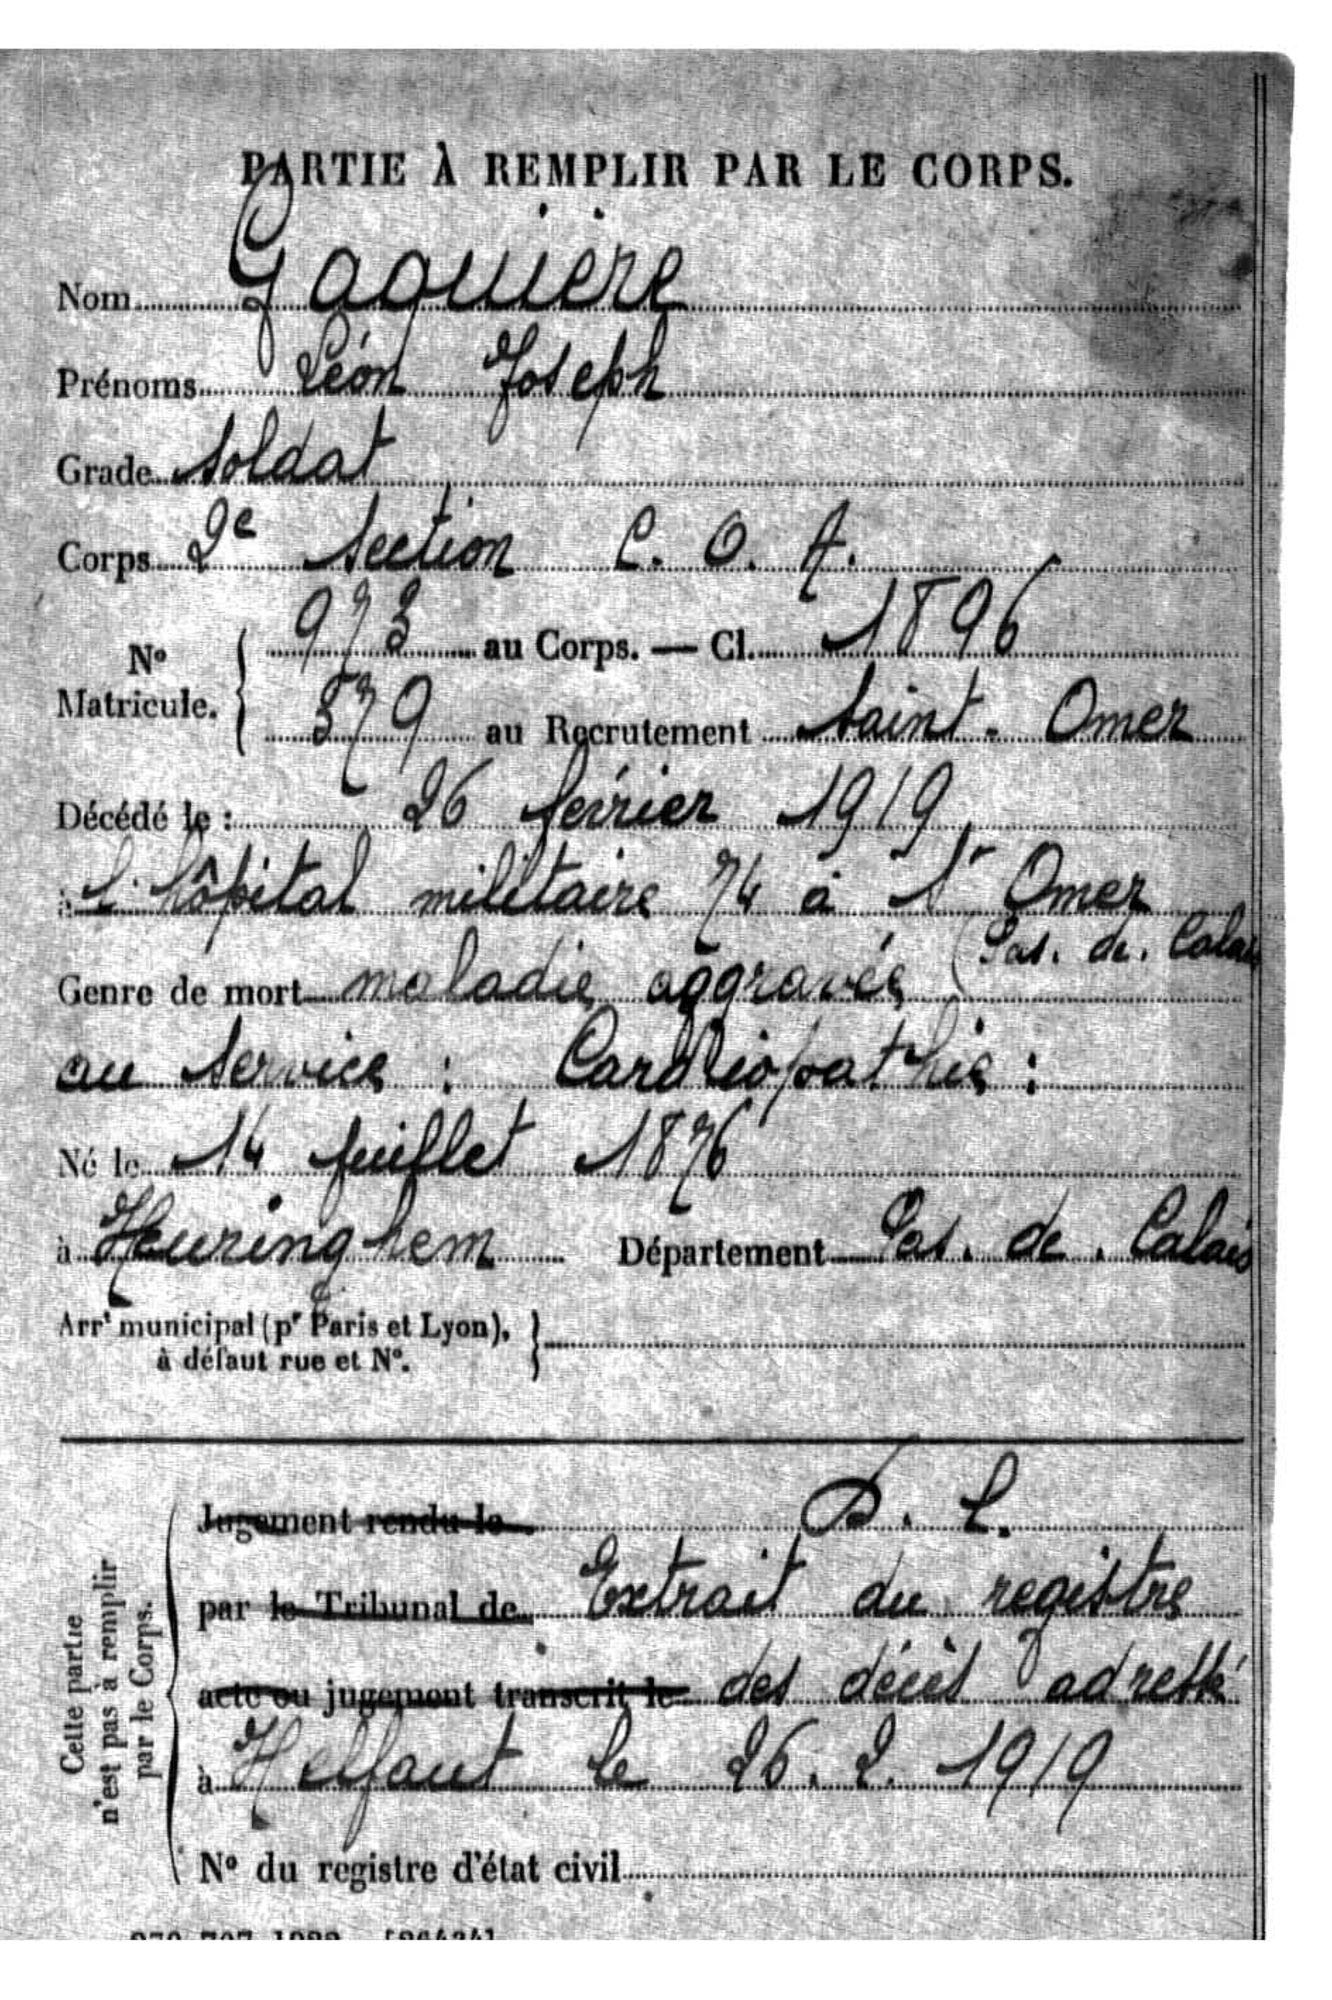 PARTIE À REMPLIR PAR LE CORPS.
Nom Gaquière
Prénoms Léon Joseph
Grade Soldat
Corps 2e Section C. O. A.
No Matricule. { 973 au Corps. — Cl. 1896
579 au Recrutement Saint-Omer
Décédé le : 26 février 1919
à l'hôpital militaire 74 à St Omer
(Pas. de. Calais
Genre de mort maladie aggravée
au service : Cardiopathie :
Né le 14 juillet 1876
à Heuringhem Département Pas. de. Calais
Arrt municipal (pr Paris et Lyon), }
à défaut rue et No.
Cette partie
n'est pas à remplir
par le Corps.
Jugement rendu le D. C.
par le Tribunal de Extrait du registre
acte ou jugement transcrit le des décès adressé
à Helfaut le 26. 2. 1919
No du registre d'état civil